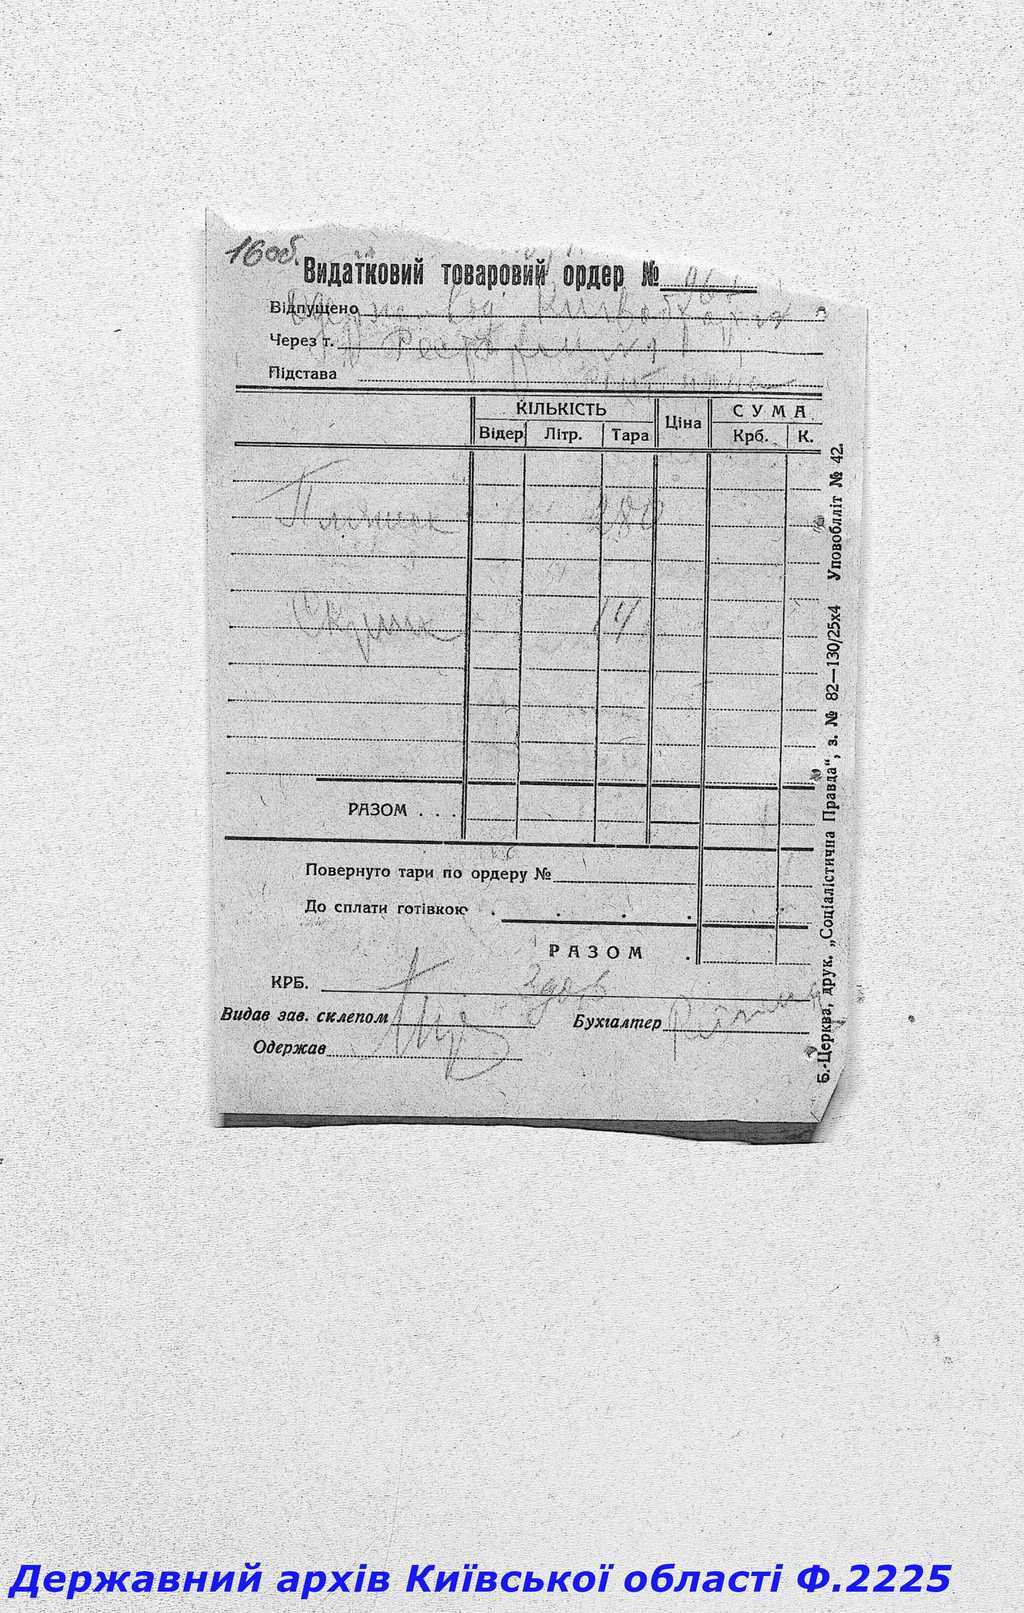 16 об.
Видатковий товаровий ордер №
Відпущено
Через т.
Підстава
КІЛЬКІСТЬ Ціна СУМА
Відер Літр. Тара Крб. К.
Пляшок 280
Скриньк 14
РАЗОМ . . .
Повернуто тари по ордеру №
До сплати готівкою . . . .
РАЗОМ .
КРБ. Здав
Видав зав. склепом Бухгалтер
Одержав
Б.-Церква, друк. „Соціалістична Правда“, з. № 82—130/25х4 Уповоблліт № 42.
Державний архів Київської області Ф.2225